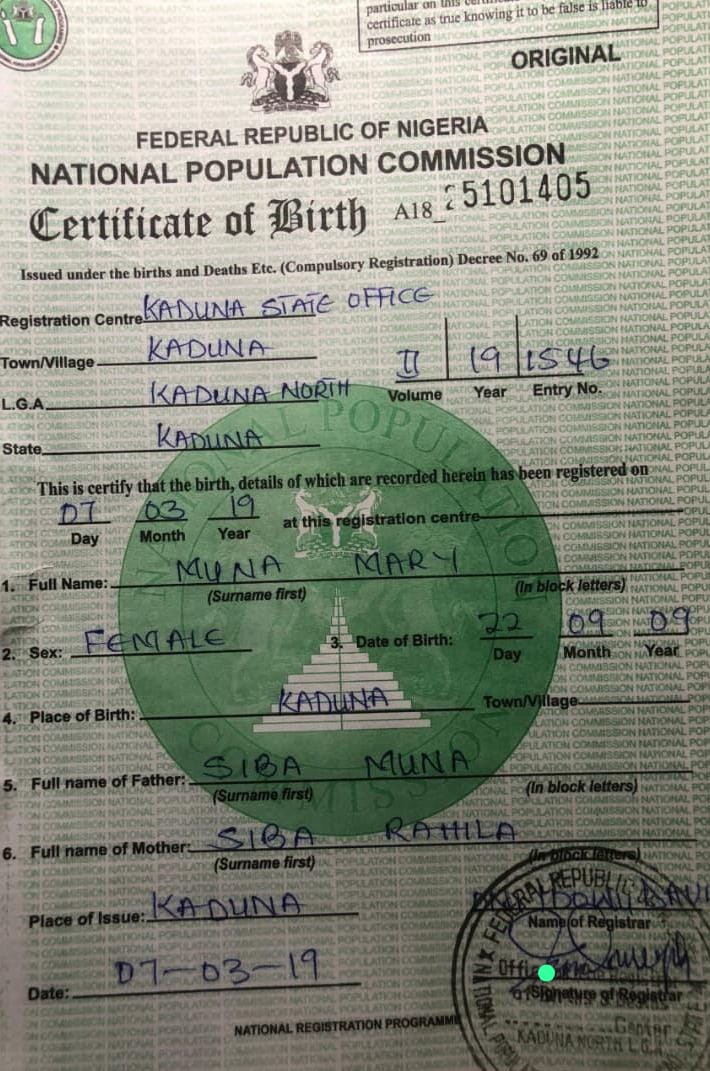 particular on this certificate
certificate as true knowing it to be false is liable to
prosecution
ORIGINAL
FEDERAL REPUBLIC OF NIGERIA
NATIONAL POPULATION COMMISSION
Certificate of Birth A18_ 5101405
Issued under the births and Deaths Etc. (Compulsory Registration) Decree No. 69 of 1992
Registration Centre KADUNA STATE OFFICE
Town/Village KADUNA
II 19 1546
L.G.A. KADUNA NORTH
Volume Year Entry No.
State KADUNA
This is certify that the birth, details of which are recorded herein has been registered on
07 03 19 at this registration centre
Day Month Year
1. Full Name: MUNA MARY
(Surname first) (In block letters)
2. Sex: FEMALE 3. Date of Birth: 22 09 09
Day Month Year
4. Place of Birth: KADUNA Town/Village
5. Full name of Father: SIBA MUNA
(Surname first) (In block letters)
6. Full name of Mother: SIBA RAHILA
(Surname first) (In block letters)
Place of Issue: KADUNA
Name of Registrar
Date: 07-03-19
Signature of Registrar
NATIONAL REGISTRATION PROGRAMME
FEDERAL REPUBLIC
KADUNA NORTH L.G.A
NATIONAL POPULATION COMMISSION